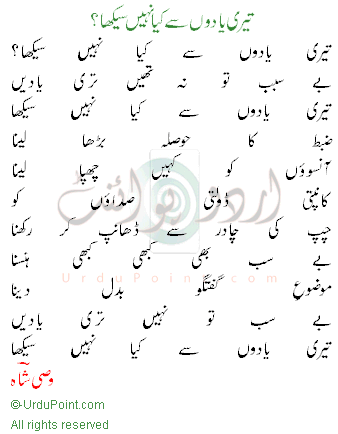 تیری یادوں سے کیا نہیں سیکھا؟
تیری یادوں سے کیا نہیں سیکھا؟
بے سبب تو نہ تھیں تری یادیں
تیری یادوں سے کیا نہیں سیکھا
ضبط کا حوصلہ بڑھا لینا
آنسوؤں کو کہیں چھپا لینا
کانپتی ڈولتی صداؤں کو
چپ کی چادر سے ڈھانپ کر رکھنا
بے سبب بھی کبھی کبھی ہنسنا
موضوعِ گفتگو بدل دینا
بے سبب تو نہیں تری یادیں
تیری یادوں سے کیا نہیں سیکھا
وصی شاہ
اردو پوائنٹ
UrduPoint.com
©-UrduPoint.com
All rights reserved